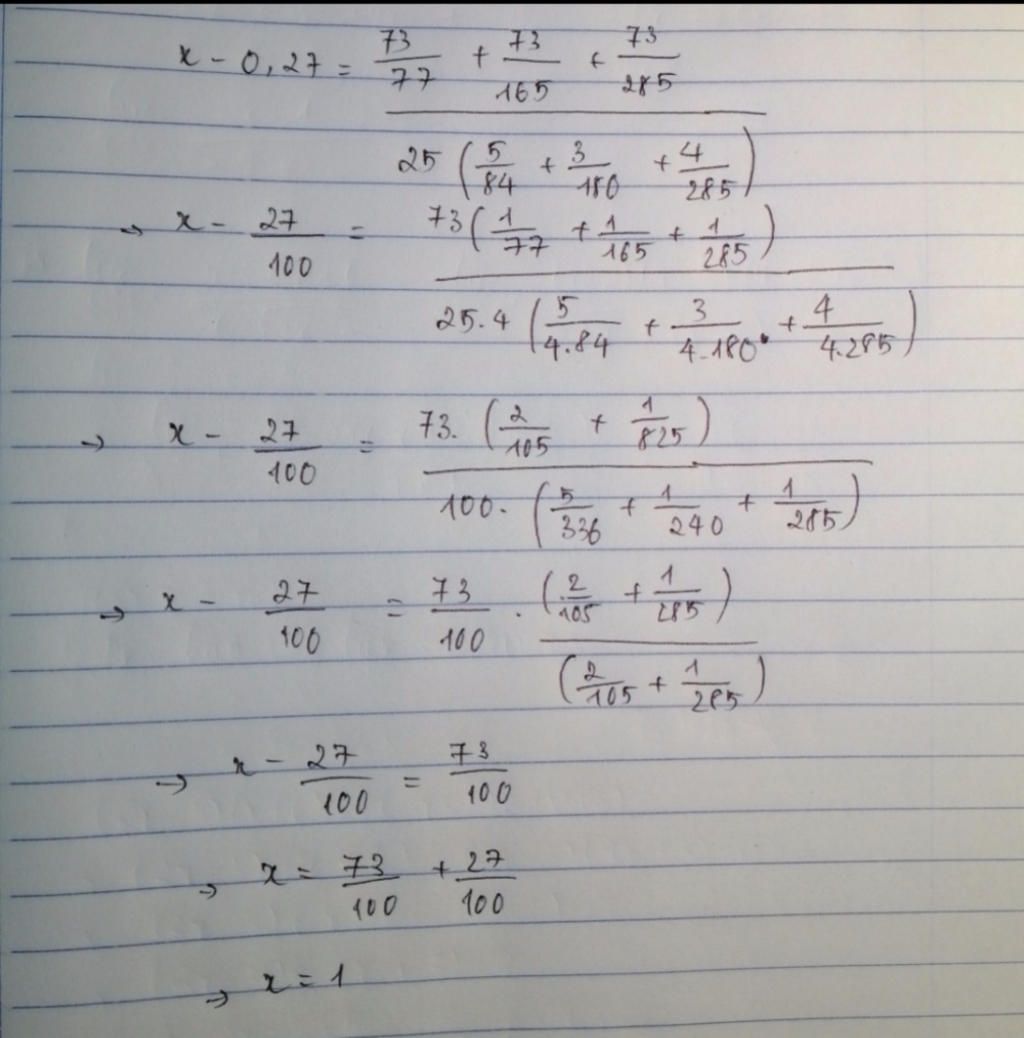 x - 0,27 = 73/77 + 73/165 + 73/285
25 (5/84 + 3/180 + 4/285)
→ x - 27/100 = 73 (1/77 + 1/165 + 1/285)
25.4 (5/4.84 + 3/4.180 + 4/4.285)
→ x - 27/100 = 73. (2/105 + 1/825)
100. (5/336 + 1/240 + 1/285)
→ x - 27/100 = 73/100 . (2/105 + 1/285)
(2/105 + 1/285)
→ x - 27/100 = 73/100
→ x = 73/100 + 27/100
→ x = 1